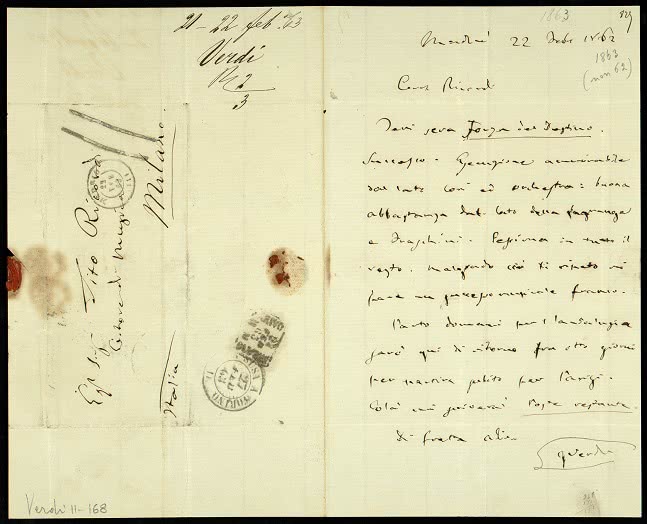 21-22 feb. 63
Verdi
R 2
3
Egr Sig Tito Ricordi
Editore di Musica
Milano
Italia
TORINO
Verdi 11-168
1863
Madrid 22 Feb. 1862
1863
(non 62)
Caro Ricordi
Jeri sera Forza del Destino.
Successo. Esecuzione ammirabile
dal lato cori ed orchestra: buona
abbastanza dal lato della Lagrange
e Fraschini. Pessima in tutto il
resto. Malgrado ciò ti ripeto vi
successo
Parto domani per l'Andalusia
sarò qui di ritorno fra otto giorni
per partire subito per Parigi.
Colà mi scriverai Poste restante.
Di fretta addio
GVerdi